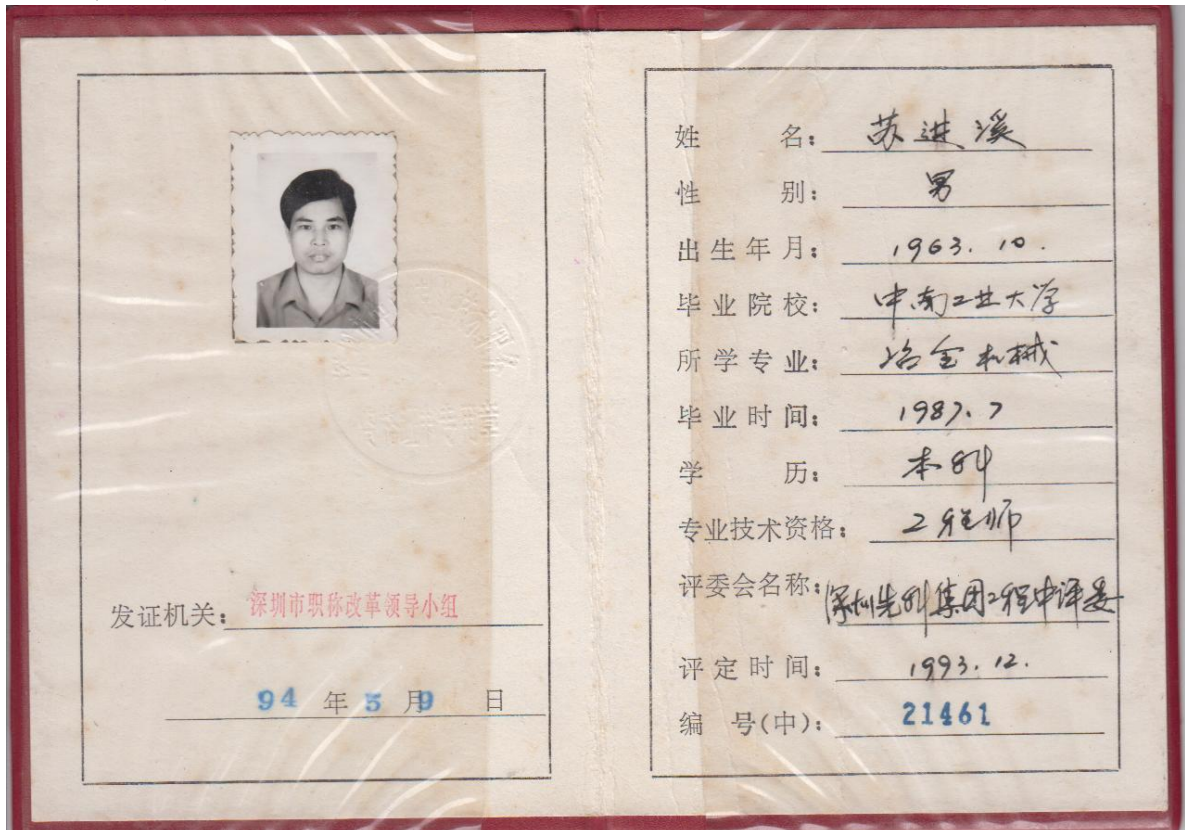 发证机关：深圳市职称改革领导小组
94 年 5 月 9 日
姓 名：苏进溪
性 别：男
出生年月：1963.10.
毕业院校：中南工业大学
所学专业：冶金机械
毕业时间：1987.7
学 历：本科
专业技术资格：工程师
评委会名称：深圳先科集团工程中评委
评定时间：1993.12.
编 号(中)：21461